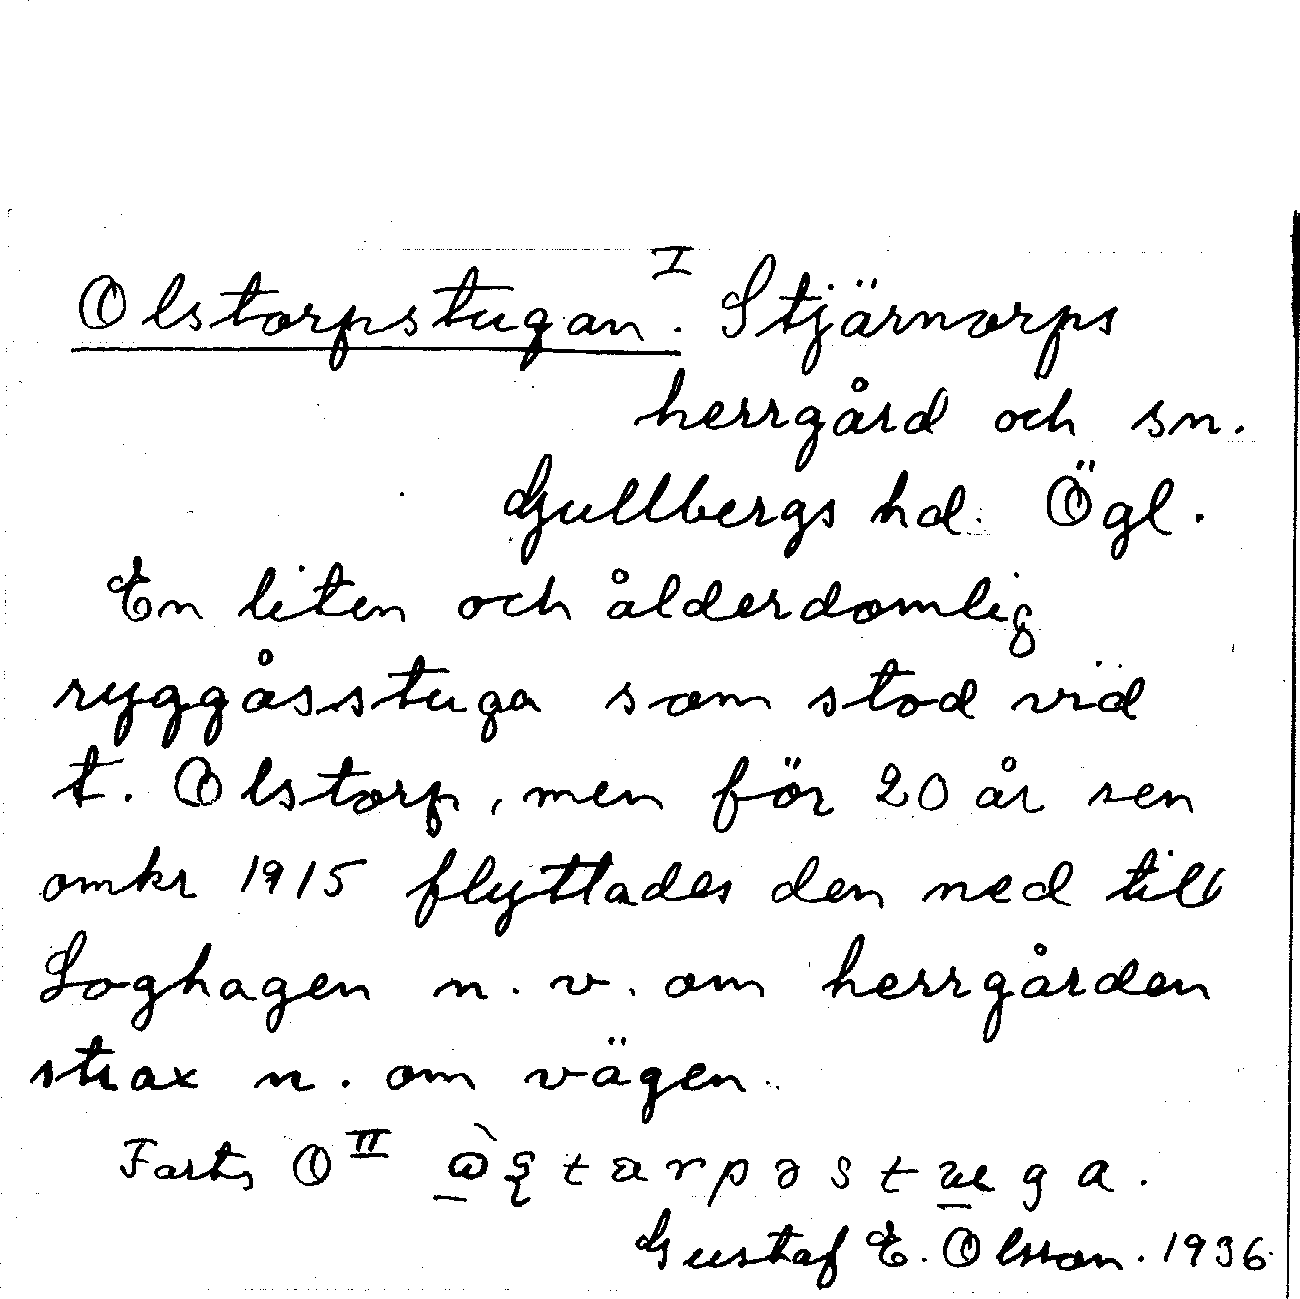 Olstorpstugan. I Stjärnorps
herrgård och sn.
Gullbergs hd. Ögl.
En liten och ålderdomlig
ryggåsstuga som stod vid
t. Olstorp, men för 20 år sen
omkr 1915 flyttades den ned till
Loghagen n. v. om herrgården
strax n. om vägen.
Forts O II
Gustaf E. Olsson. 1936.